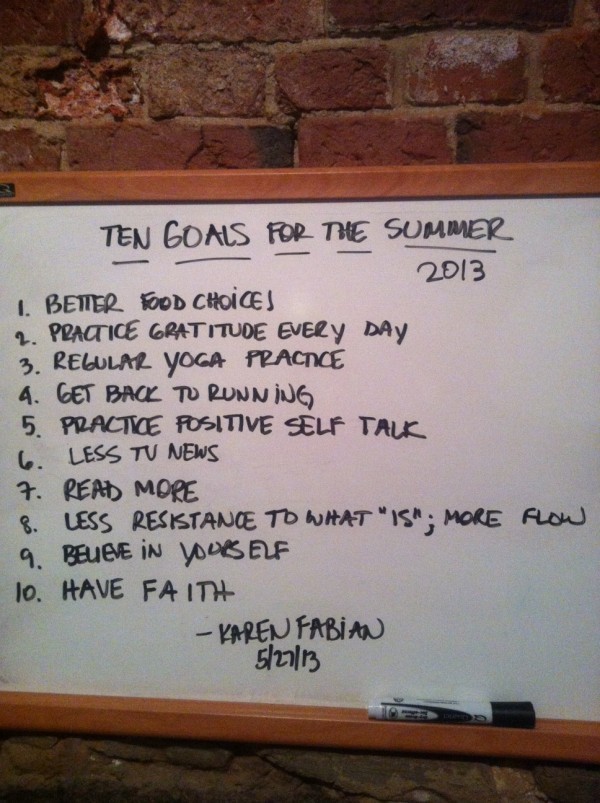 TEN GOALS FOR THE SUMMER
2013
1. BETTER FOOD CHOICES
2. PRACTICE GRATITUDE EVERY DAY
3. REGULAR YOGA PRACTICE
4. GET BACK TO RUNNING
5. PRACTICE POSITIVE SELF TALK
6. LESS TV NEWS
7. READ MORE
8. LESS RESISTANCE TO WHAT "IS"; MORE FLOW
9. BELIEVE IN YOURSELF
10. HAVE FAITH
- KAREN FABIAN
5/27/13